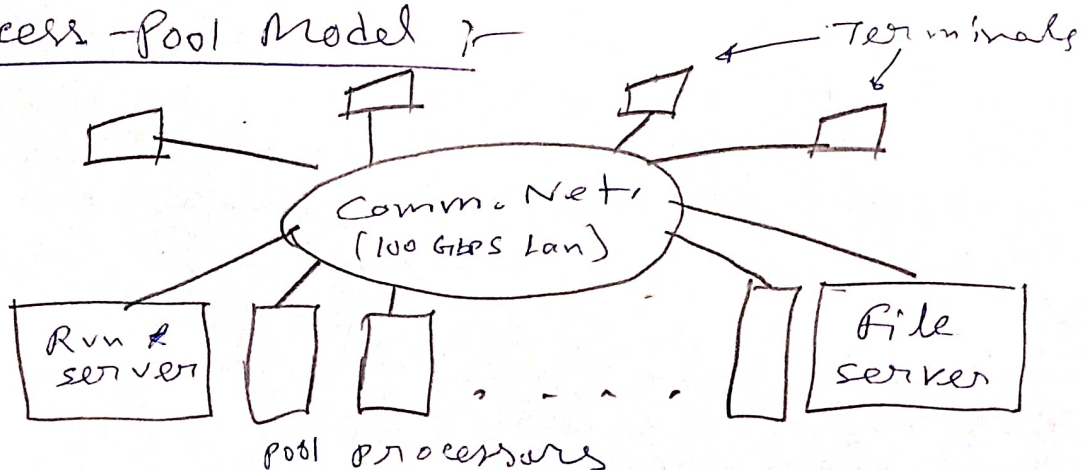 cess-Pool Model :-
Terminals
Comm. Net.
(100 Gbps Lan)
Run
server
File
server
Pool processors